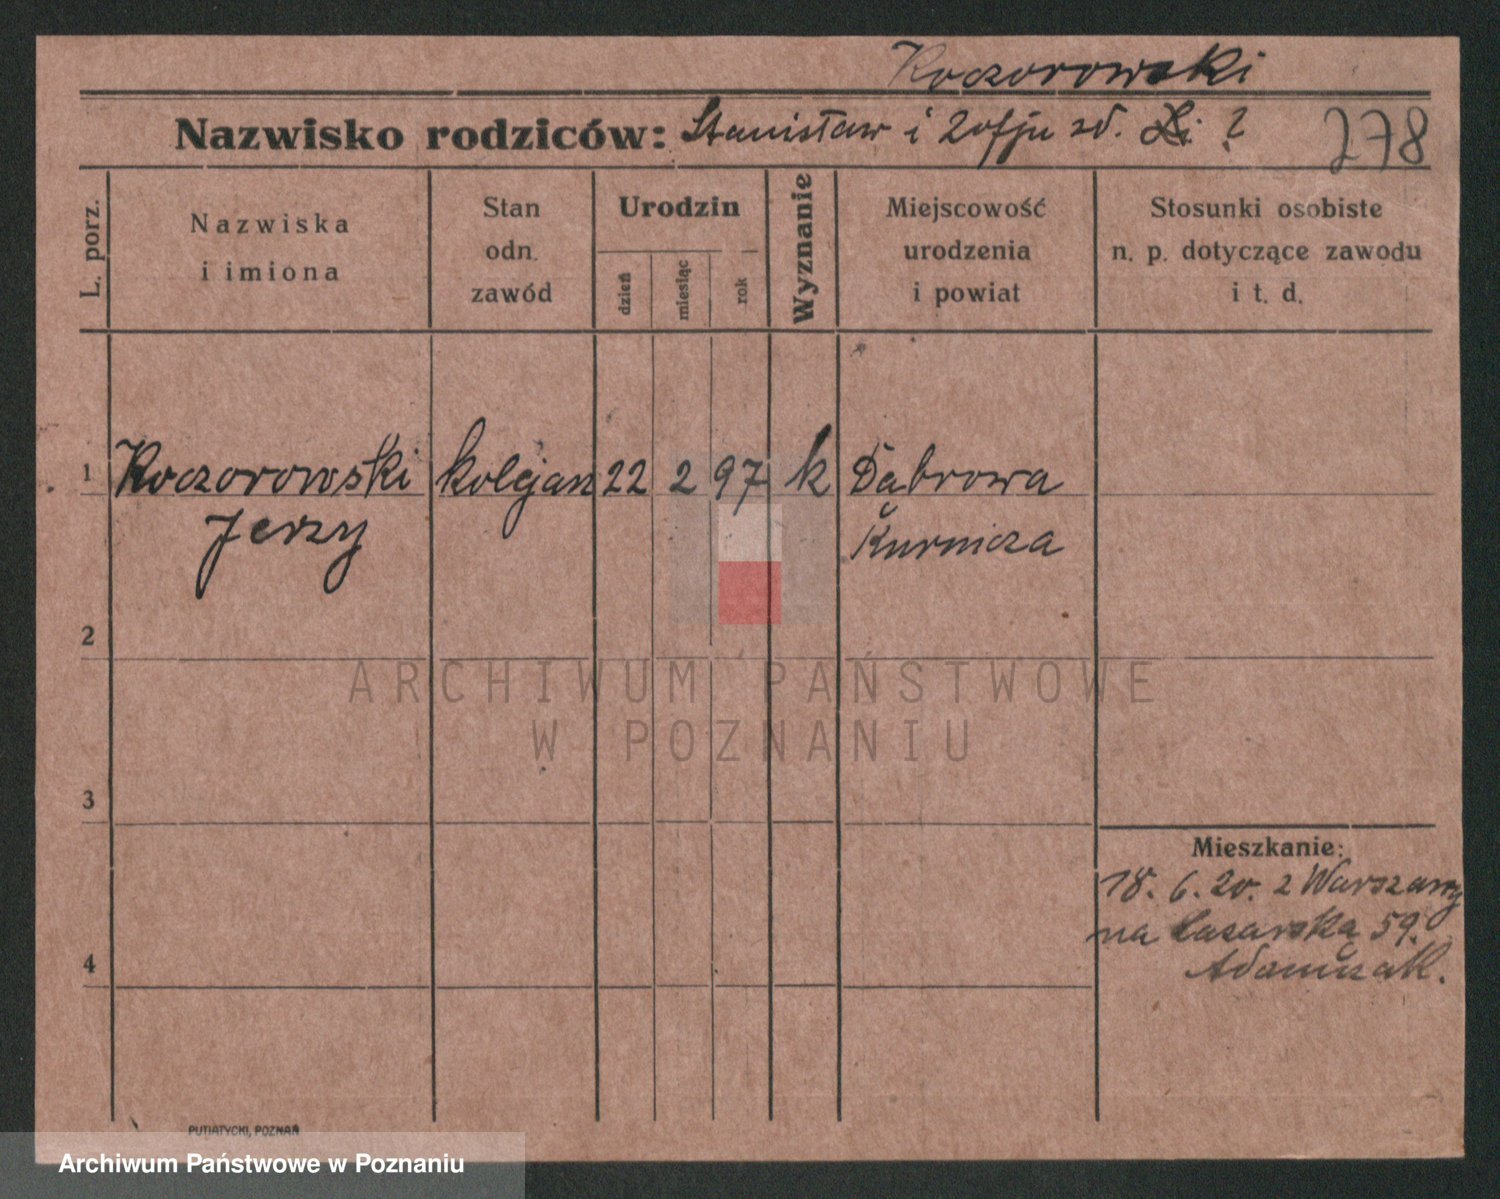 Koczorowski
Nazwisko rodziców: Stanisław i Zofju zd. ?
278
L. porz.
Nazwiska
i imiona
Stan
odn.
zawód
Urodzin
dzień
miesiąc
rok
Wyznanie
Miejscowość
urodzenia
i powiat
Stosunki osobiste
n. p. dotyczące zawodu
i t. d.
1 Koczorowski kolejarz 22 2 97 k Dąbrowa
Jerzy Kurnicza
2
ARCHIWUM PAŃSTWOWE
W POZNANIU
3
Mieszkanie:
18. 6. 20. z Warszawy
na Łazarska 59.
Adamczak.
4
PUTIATYCKI, POZNAŃ
Archiwum Państwowe w Poznaniu